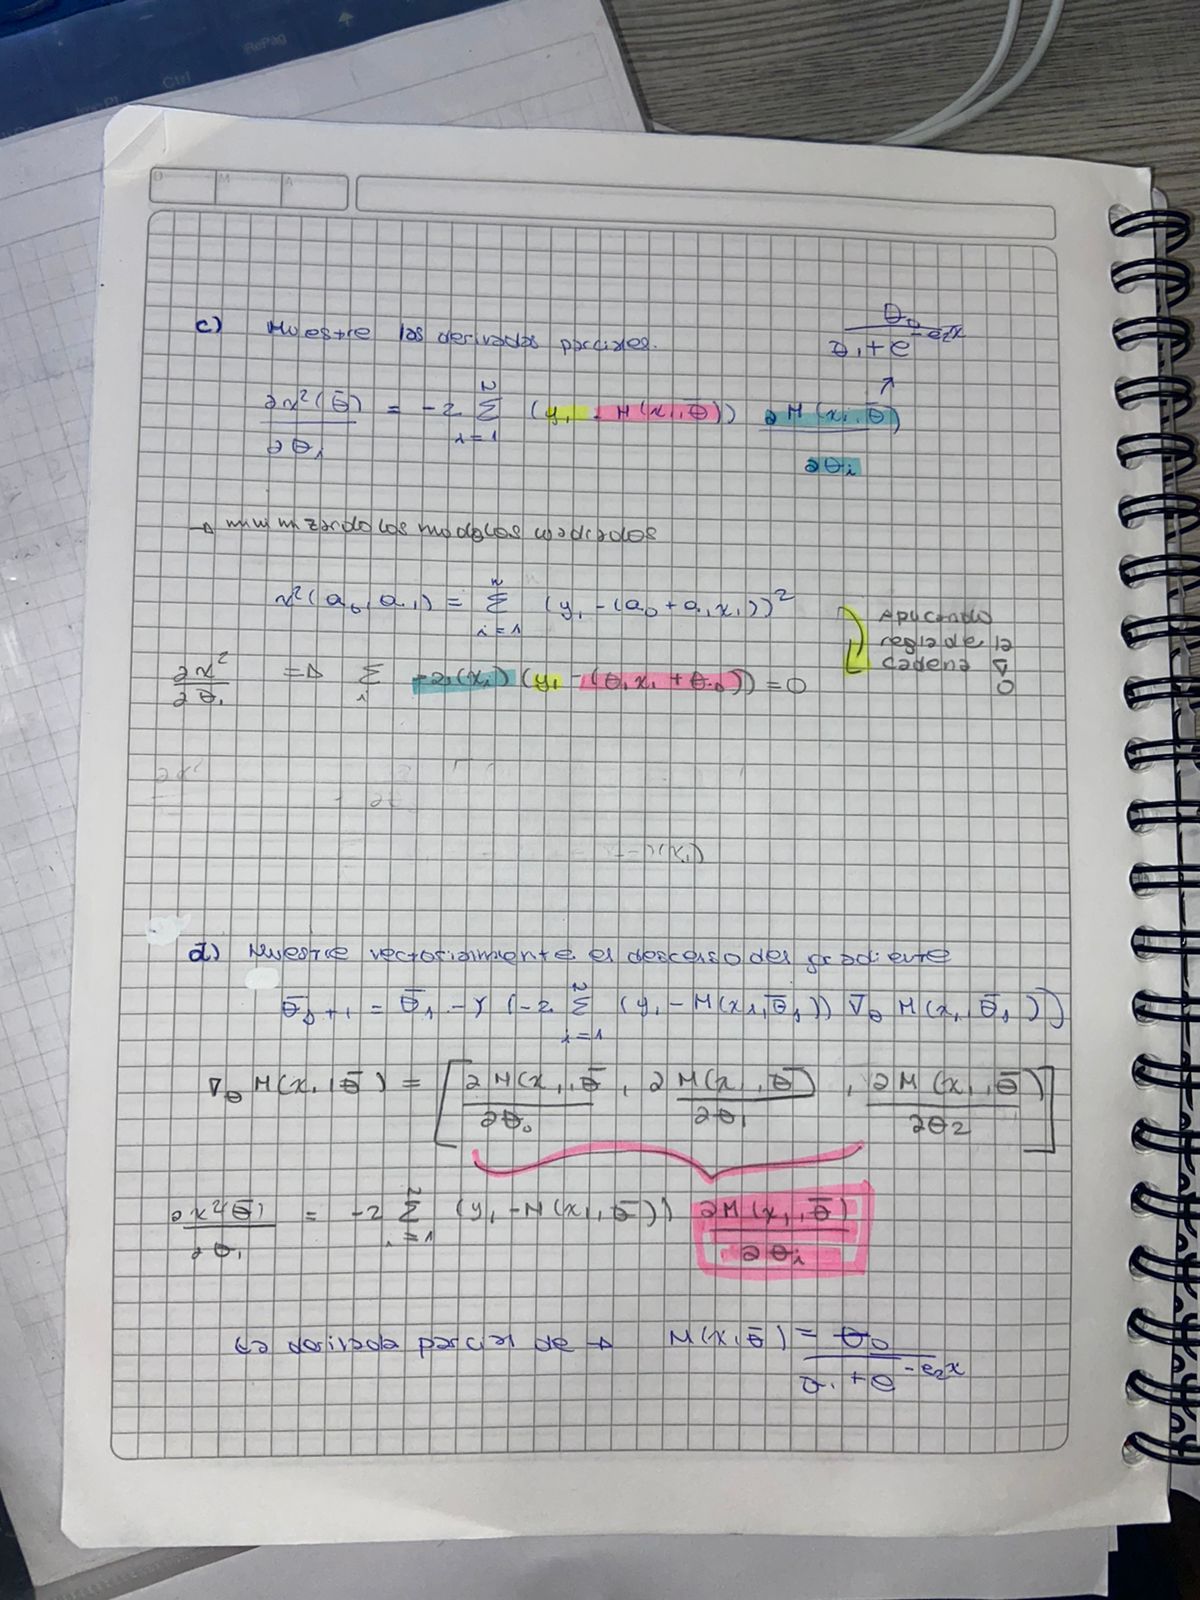 RePag
Ctrl
D M A
c) Muestre las derivadas parciales.
θ₀ / (θ₁ + e^(-θ₂x))
∂χ²(θ̄)/∂θᵢ = -2 Σ_{i=1}^{N} (yᵢ - M(xᵢ, θ̄)) ∂M(xᵢ, θ̄)/∂θᵢ
→ minimizando los modelos cuadrados
χ²(a₀, a₁) = Σ_{i=1}^{n} (yᵢ - (a₀ + a₁xᵢ))²
Aplicando
regla de la
cadena ∇
0
∂χ²/∂θ₁ ⇒ Σ_i -2(xᵢ)(yᵢ - (θ₁xᵢ + θ₀)) = 0
d) Muestre vectorialmente el descenso del gradiente
θ̄_{j+1} = θ̄_j - γ (-2 Σ_{i=1}^{N} (yᵢ - M(xᵢ, θ̄_j)) ∇_θ M(xᵢ, θ̄_j))
∇_θ M(xᵢ, θ̄) = [∂M(xᵢ, θ̄/∂θ₀, ∂M(xᵢ, θ̄)/∂θ₁, ∂M(xᵢ, θ̄)/∂θ₂]
∂χ²(θ̄)/∂θᵢ = -2 Σ_{i=1}^{N} (yᵢ - M(xᵢ, θ̄)) ∂M(xᵢ, θ̄)/∂θᵢ
La derivada parcial de → M(x, θ̄) = θ₀ / (θ₁ + e^(-θ₂x))